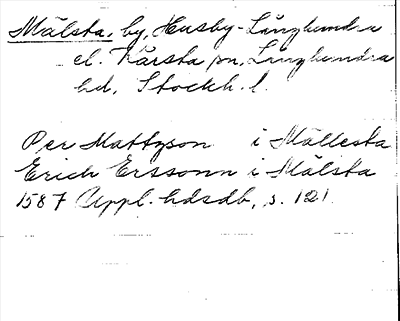 Mälsta, by, Husby-Långhundra
el. Kårsta sn, Långhundra
hd, Stockh. l.
Per Mattzson i Mällesta
Erich Erssonn i Mälsta
1587 Uppl. hdsdb, s. 121.